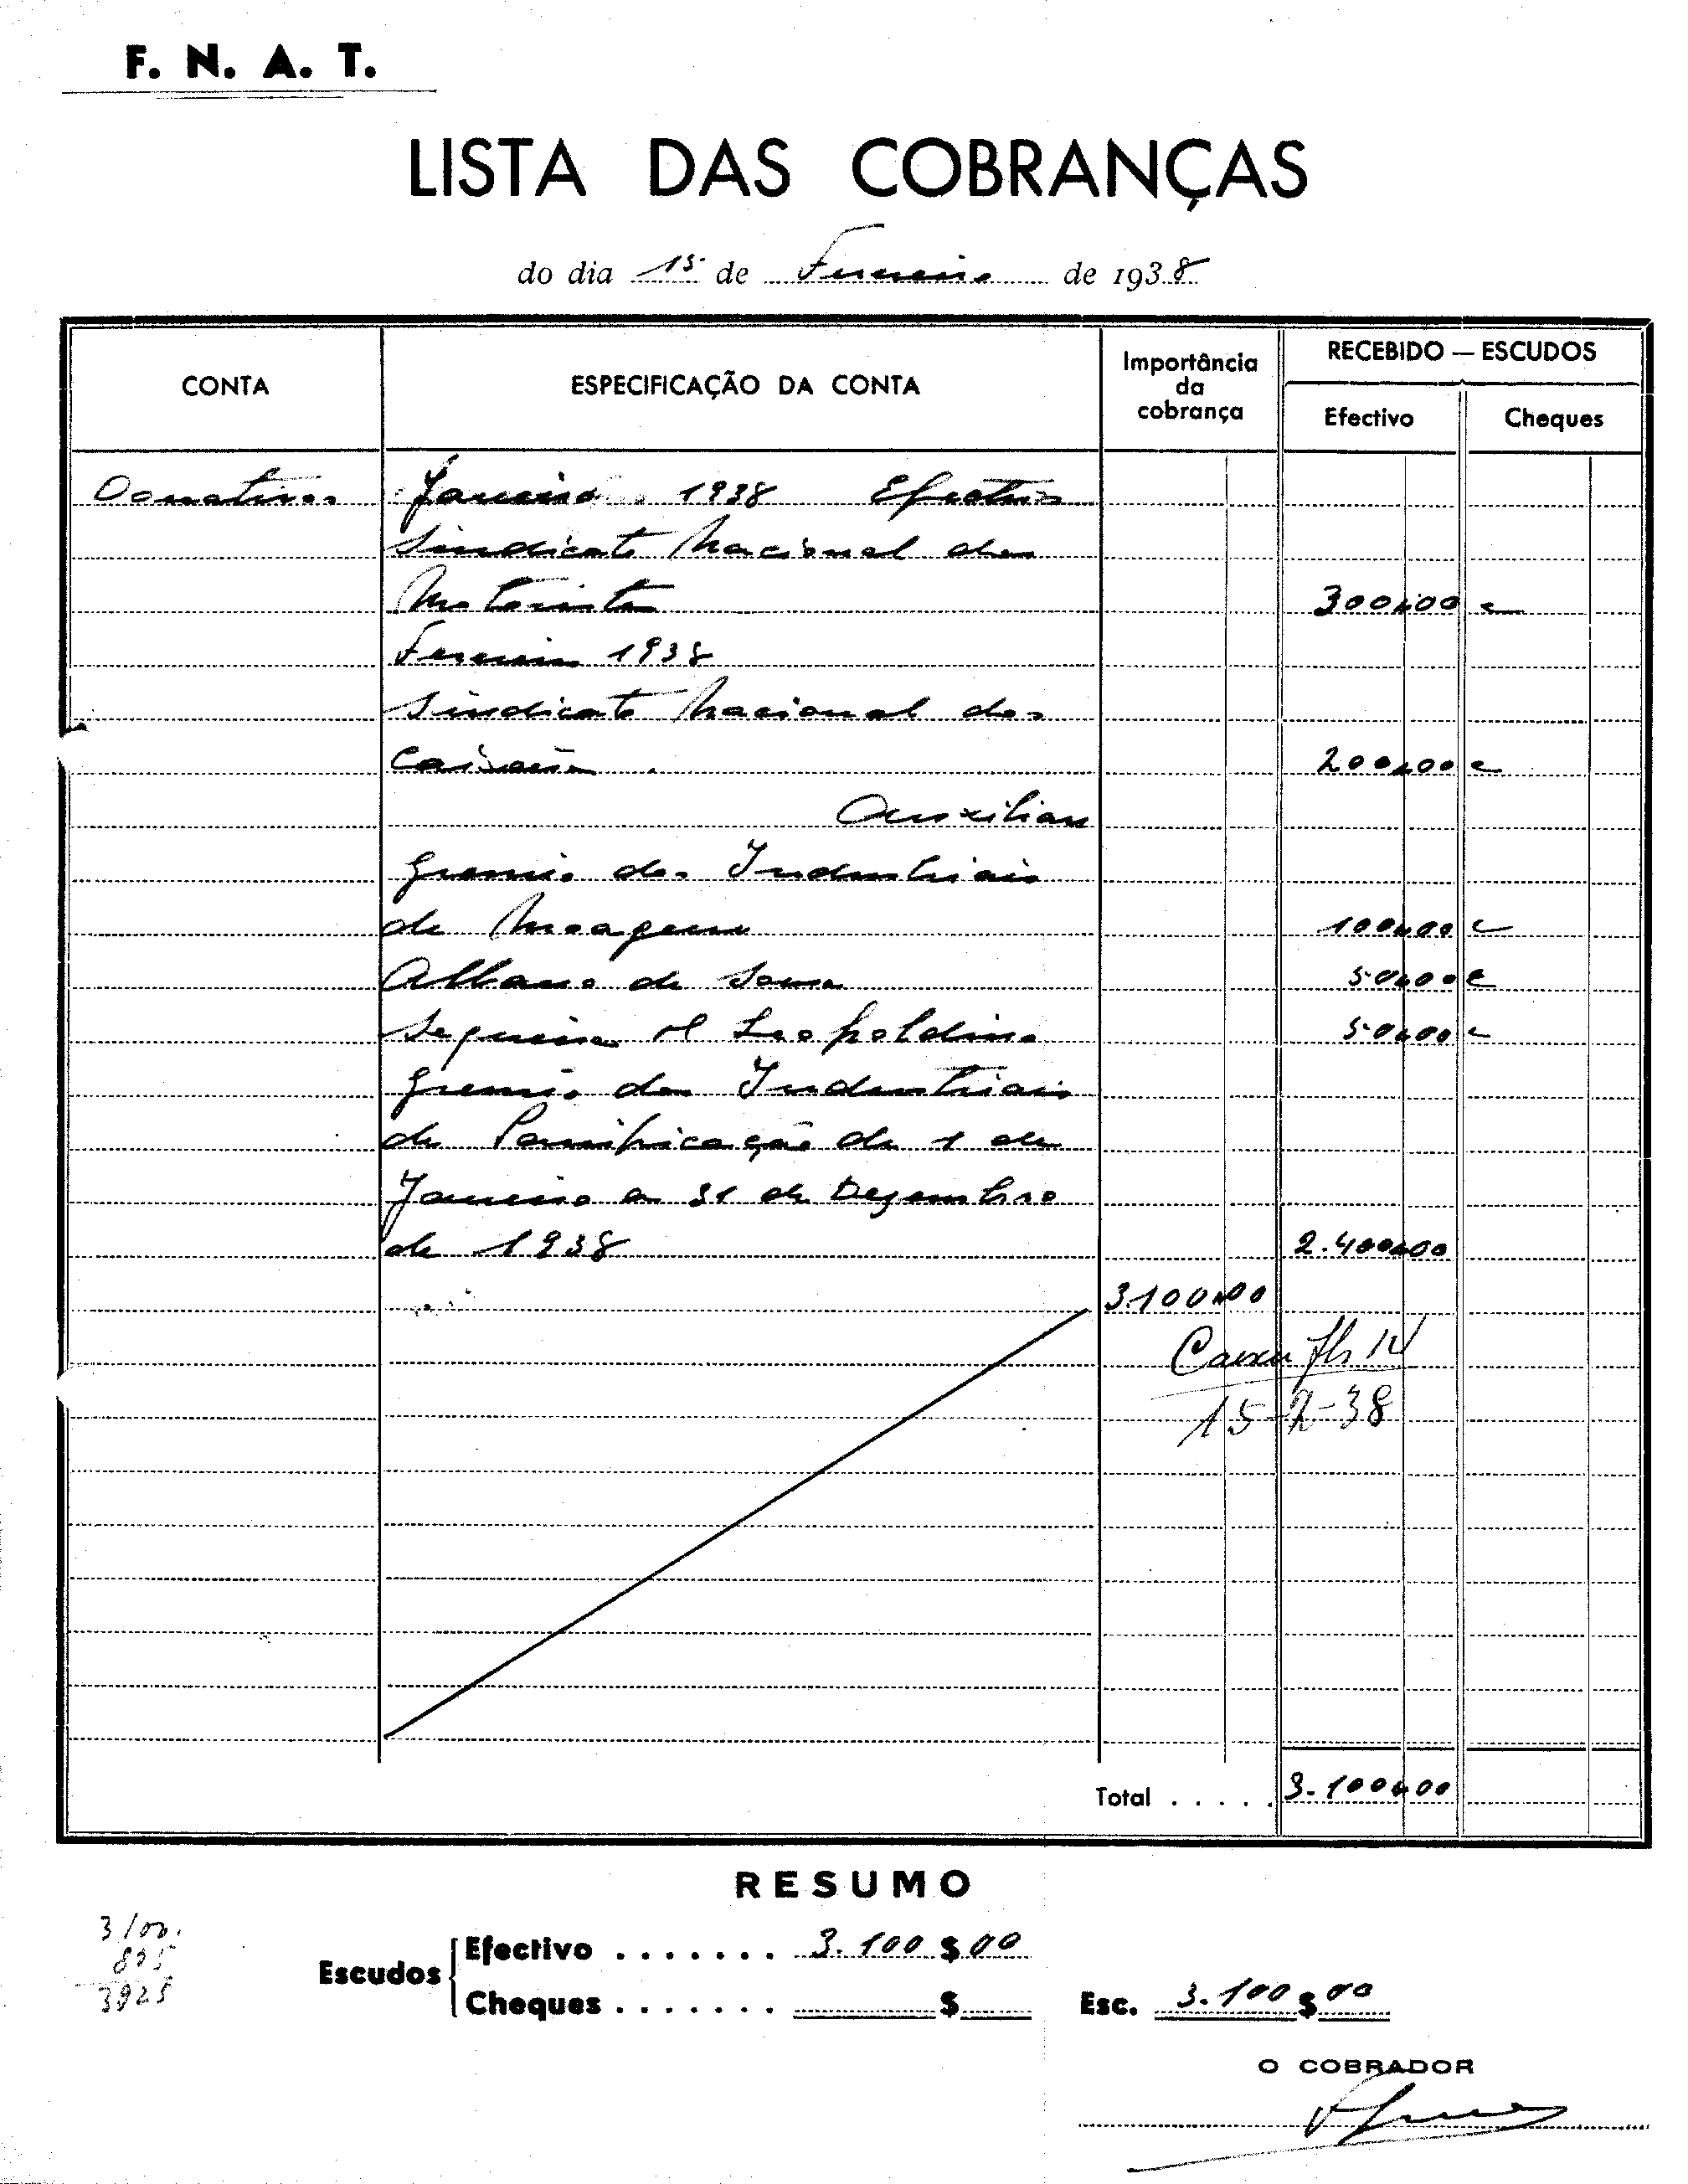 F. N. A. T.
LISTA DAS COBRANÇAS
do dia 15 de Fevereiro de 1938
CONTA
ESPECIFICAÇÃO DA CONTA
Importância
da
cobrança
RECEBIDO — ESCUDOS
Efectivo
Cheques
Donativos Janeiro 1938 Efectivos
Sindicato Nacional dos
Motoristas 300$00
Fevereiro 1938
Sindicato Nacional dos
Caixeiros 200$00
Auxiliar
Gremio dos Industriais
de Moagem 100$00
Albano de Sousa 50$00
Sequeira Leopoldino 50$00
Gremio dos Industriais
de Panificação de 1 de
Janeiro a 31 de Dezembro
de 1938 2.400$00
3.100$00
Caixa fls 14
15-2-38
Total ..... 3.100$00
RESUMO
3100.
825
3925
Escudos
Efectivo ....... 3.100$00
Cheques ....... $
Esc. 3.100$00
O COBRADOR